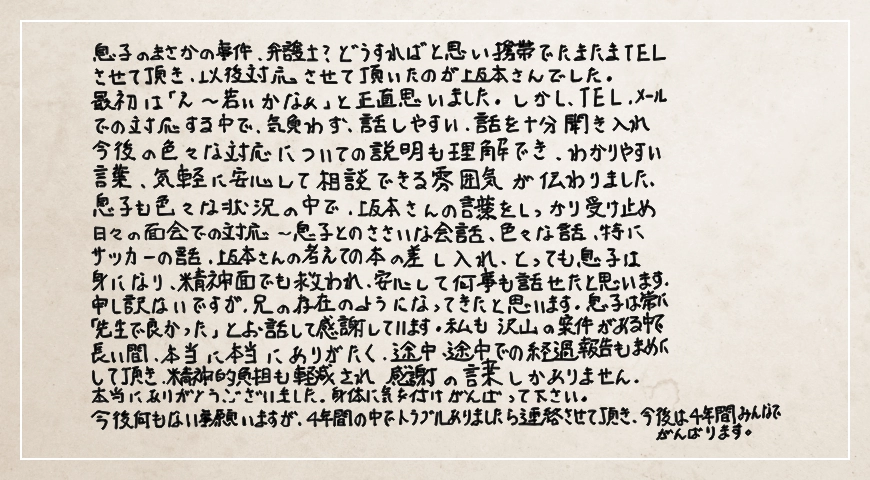 息子のまさかの事件、弁護士?どうすればと思い携帯でたまたまTEL
させて頂き、以後対応させて頂いたのが上坂本さんでした。
最初は「え〜若いかなぁ」と正直思いました。しかし、TEL、メール
での対応する中で、気負わず、話しやすい、話を十分聞き入れ
今後の色々な対応についての説明も理解でき、わかりやすい
言葉、気軽に安心して相談できる雰囲気が伝わりました。
息子も色々な状況の中で、坂本さんの言葉をしっかり受け止め
日々の面会での対応〜息子とのささいな会話、色々な話、特に
サッカーの話、坂本さんの考えての本の差し入れ、とっても息子は
身になり、精神面でも救われ、安心して何事も話せたと思います。
申し訳ないですが、兄の存在のようになってきたと思います。息子は常に
「先生で良かった」とお話して感謝しています。私も沢山の案件がある中で
長い間、本当に本当にありがたく、途中、途中での経過報告もまめに
して頂き、精神的負担も軽減され 感謝の言葉しかありません。
本当にありがとうございました。身体に気を付けがんばって下さい。
今後何もない事願いますが、4年間の中でトラブルありましたら連絡させて頂き、今後は4年間みんなで
がんばります。